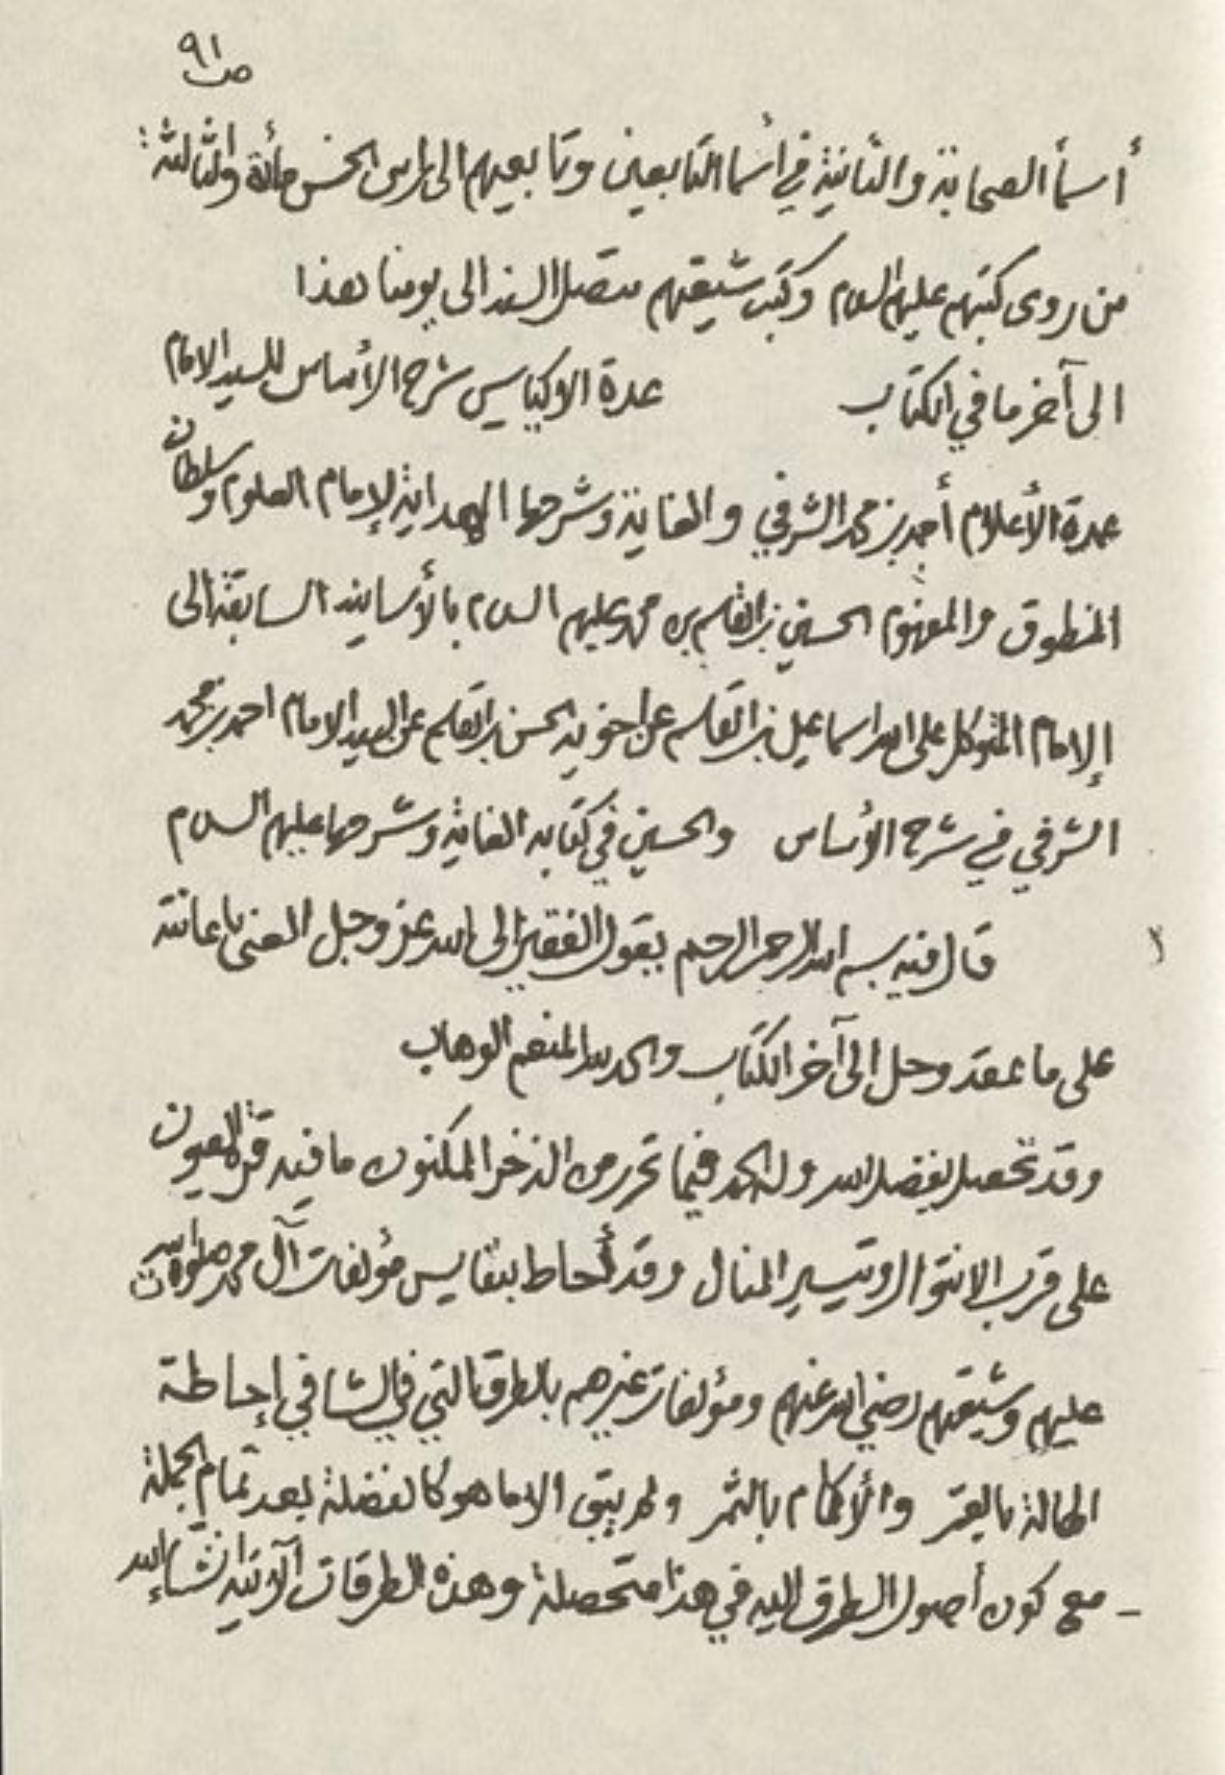 ص ٩١
أسمأ الصحابة والثانية في أسما التابعين وتابعيهم الى رأس الخمس مائة والثالثة:
من روى كتبهم عليهم السلام وكتب شيعتهم متصل السند الى يومنا هذا
الى آخر ما في الكتاب عدة الاكياس شرح الأساس للسيد الامام
عمدة الأعلام أحمد بن محمد الشرفي والغاية وشرحها الهداية لإمام العلوم وسلطان
المنطوق والمفهوم الحسين بن القاسم بن محمد عليهم السلام بالأسانيد السابقة الى
الإمام المتوكل على الله اسماعيل بن القاسم عن اخويه الحسن بن القاسم عن السيد الامام احمد بن محمد
الشرفي في شرح الأساس والحسين في كتابه الغاية وشرحها عليهم السلام
قال فيه بسم الله الرحمن الرحيم يقول الفقير الى الله عز وجل الغني باعانته
على ما عقد وحل الى آخر الكتاب والحمد لله المنعم الوهاب
وقد تحصل بفضل الله وله الحمد فيما تحرر من الذخر المكنون ما فيه قرة العيون
على قرب الانتوال وتيسير المنال وقد أحاط بنفايس مؤلفات آل محمد صلوات الله
عليهم وشيعتهم رضي الله عنهم ومؤلفات غيرهم بالطرق التي في الشافي إحاطة
الهالة بالقمر والأكمام بالثمر ولم يبق الا ما هو كالفضلة بعد تمام الجملة
- مع كون أصول الطرق اليه في هذا متحصلة وهذه الطرقات الآتية انشاء الله